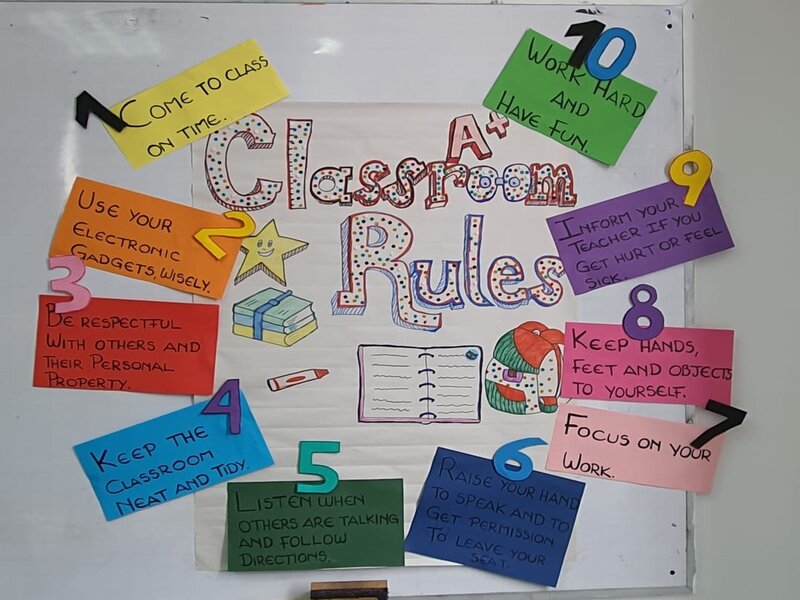 A+
Classroom
Rules
1
COME TO CLASS
ON TIME.
2
USE YOUR
ELECTRONIC
GADGETS, WISELY.
3
BE RESPECTFUL
WITH OTHERS AND
THEIR PERSONAL
PROPERTY.
4
KEEP THE
CLASSROOM
NEAT AND TIDY.
5
LISTEN WHEN
OTHERS ARE TALKING
AND FOLLOW
DIRECTIONS.
6
RAISE YOUR HAND
TO SPEAK AND TO
GET PERMISSION
TO LEAVE YOUR
SEAT.
7
FOCUS ON YOUR
WORK.
8
KEEP HANDS,
FEET AND OBJECTS
TO YOURSELF.
9
INFORM YOUR
TEACHER IF YOU
GET HURT OR FEEL
SICK.
10
WORK HARD
AND
HAVE FUN.